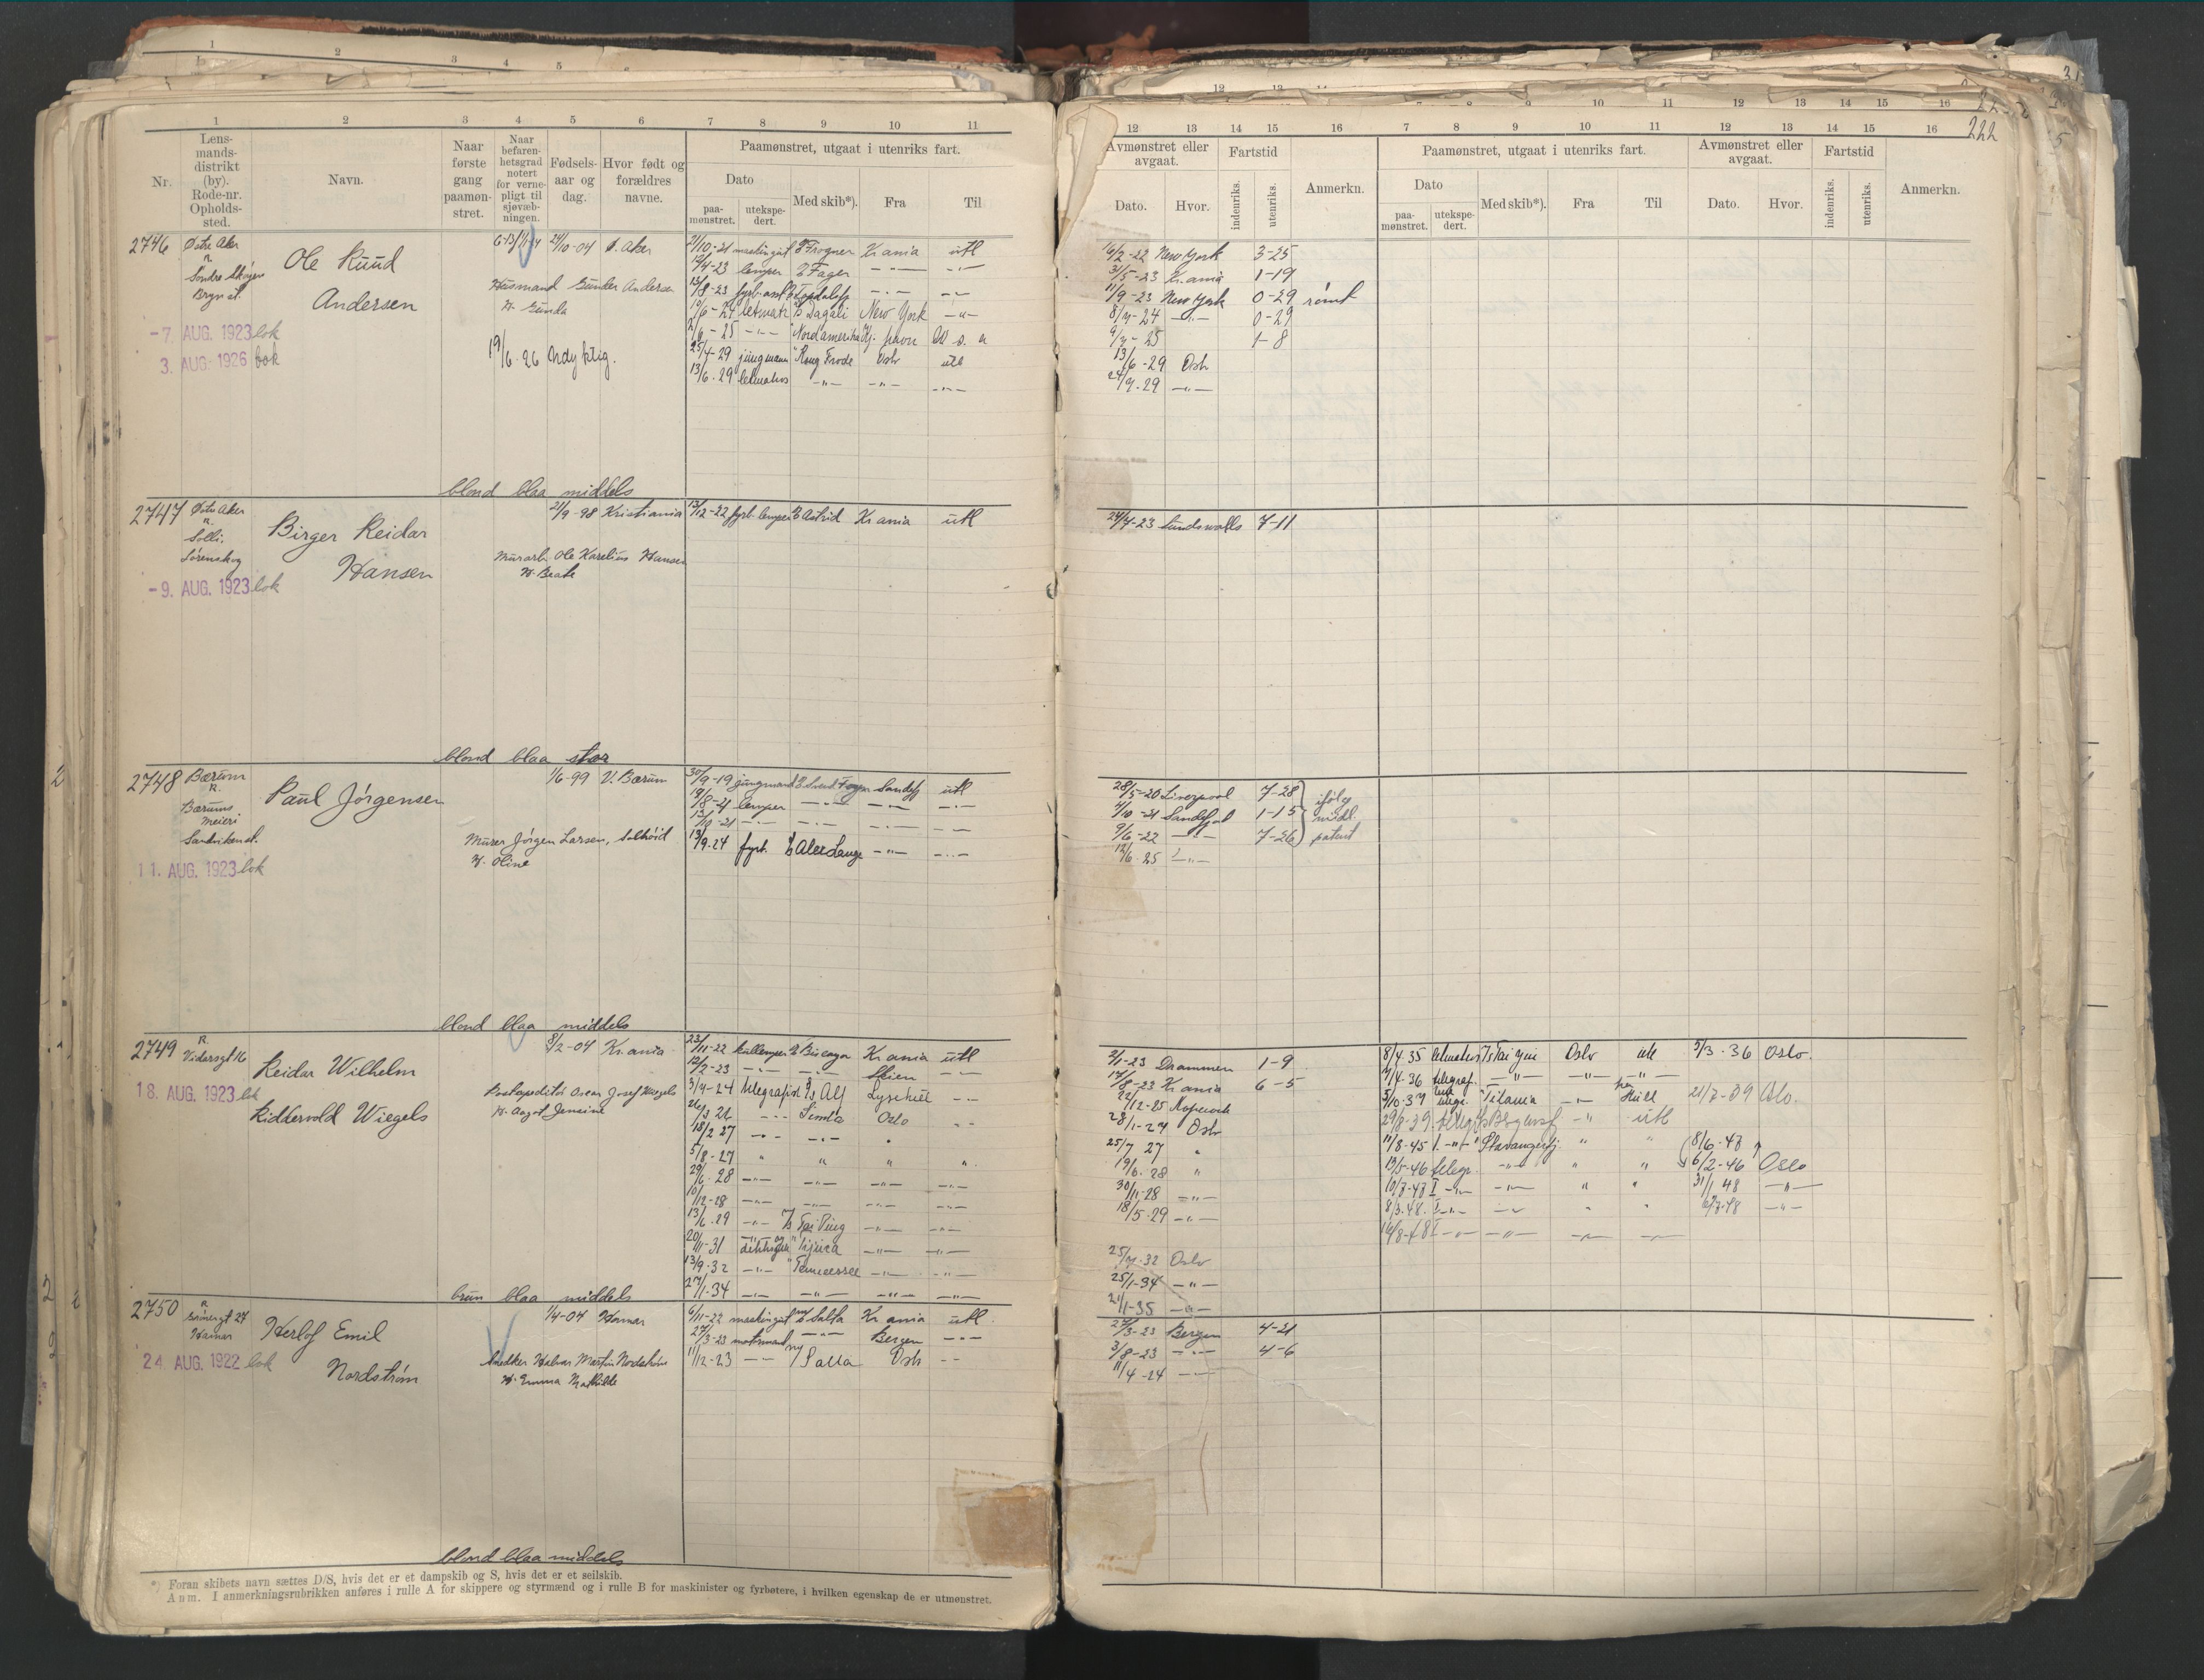 1 2 3 4 5 6 7 8 9 10 11
Nr.
Lens-
mands-
distrikt
(by).
Rode-nr.
Opholds-
sted.
Navn.
Naar
første
gang
paamøn-
stret.
Naar
befaren-
hetsgrad
notert
for verne-
pligt til
sjøvæb-
ningen.
Fødsels-
aar og
dag.
Hvor født og
forældres
navne.
Paamønstret, utgaat i utenriks fart.
Dato
paa-
mønstret.
utekspe-
dert.
Med skib*).
Fra
Til
2746 Østre Aker
R
Søndre Skøyen
Bryn st.
Ole Ruud
Andersen
-7. AUG. 1923 lok
3. AUG. 1926 bok
24/10-04 Ø. Aker
Husmand Gunder Andersen
H. Gunda
19/6-26 Udyktig.
21/10-21 maskingut Frogner Kr.ania utl
19/4-23 lemper Fager -"- -"-
13/8-23 -"- -"-
letmatr Dagali New York -"-
-25 -"- Nordamerika
25/4-29 jungmann Kong Frode Oslo utl
13/6-29 letmatros -"- -"- -"-
blond blaa middels
2747 Østre Aker
R.
Solli.
Lørenskog
Birger Reidar
Hansen
-9. AUG. 1923 lok
21/9-98 Kristiania
Murarb. Ole Karelius Hansen
H. Beate
13/12-22 fyrb. lemper Astrid Kr.ania utl
blond blaa stor
2748 Bærum
R.
Bærums
meieri
Sandviken st.
Paul Jørgensen
11. AUG. 1923 lok
1/6-99 V. Bærum
Murer Jørgen Larsen, Solhöid
H. Oline
30/9-19 jungmand Svend Foyn Sandefj utl
19/8-21 lemper -"- -"- -"-
13/10-21 -"- -"- -"- -"-
13/9-24 fyrb. Alex Lange -"- -"-
blond blaa middels
2749 R.
Vidarsgt 16
Reidar Wilhelm
18. AUG. 1923 lok
Riddervold Wiegels
8/2-04 Kr.ania
Postexpeditør Oscar Josef Wiegels
H. Aagot Jensine
23/11-22 kullemper Biscaya Kr.ania utl
19/2-23 -"- -"- Skien -"-
3/4-24 telegrafist Alf Lysekiel -"-
26/3 26 -"- Simla Oslo -"-
18/2 27 -"- -"- "
5/8-27 " " " "
29/6-28 -"- -"- -"- -"-
10/12-28 -"- -"- -"- -"-
13/6-29 -"- Tai Ping -"- -"-
20/11-31 Tijuca -"- -"-
13/9-32 -"- Tennessee -"- -"-
27/1-34 -"- -"- -"- -"-
brun blaa middels
2750 R
Grønnegt 27
Hamar
Herlof Emil
24. AUG. 1922 lok
Nordstrøm
1/4-04 Hamar
Snedker Halvar Martin Nordstrøm
H. Emma Mathilde
6/11-22 maskingut Salta Kr.ania utl
27/3-23 motormand -"- Bergen -"-
11/12-23 -"- Salta Oslo -"-
blond blaa middels
*) Foran skibets navn sættes D/S, hvis det er et dampskib og S, hvis det er et seilskib.
Anm. I anmerkningsrubrikken anføres i rulle A for skippere og styrmænd og i rulle B for maskinister og fyrbøtere, i hvilken egenskap de er utmønstret.
222
12 13 14 15 16 7 8 9 10 11 12 13 14 15 16
Avmønstret eller
avgaat.
Dato.
Hvor.
Fartstid
indenriks.
utenriks.
Anmerkn.
Paamønstret, utgaat i utenriks fart.
Dato
paa-
mønstret.
utekspe-
dert.
Med skib*).
Fra
Til
Avmønstret eller
avgaat.
Dato.
Hvor.
Fartstid
indenriks.
utenriks.
Anmerkn.
16/2-22 New York 3-25
31/5-23 Kr.ania 1-19
11/9-23 New York 0-29 rømt
8/7-24 -"- 0-29
9/7-25 1-8
13/6-29 Oslo
24/9-29 -"-
24/7-23 Sundsvalls 7-11
28/5-20 Liverpool 7-28
7/10-21 Sandefjord 1-15
9/6-22 -"- 7-26
ifølg
midl.
patent
12/6-25 -"-
2/1-23 Drammen 1-9
17/8-23 Kr.ania 6-5
22/12-25 Kopervik
28/1-27 Oslo
25/7 27 "
19/6-28 "
30/11-28 -"-
18/5-29 -"-
25/7-32 Oslo
25/1-34 -"-
21/1-35 -"-
8/4 35 letmatros Tai Yin Oslo utl 5/3-36 Oslo.
7/4-36 telegraf. -"- -"- -"-
5/10-37 Titania -"- Hull 21/7-39 Oslo.
29/8-39 telegr. Bergensf -"- utl
11/8-45 I. -"- Stavangerfj. " " 8/6-47
13/5-46 telegr. -"- " " 6/2-46 Oslo
10/7-47 I -"- -"- " " 31/1 48 -"-
8/3-48 I -"- -"- " " -"-
16/8-48 I -"- -"- -"- -"-
27/3-23 Bergen 4-21
3/8-23 -"- 4-6
11/4-24 -"-